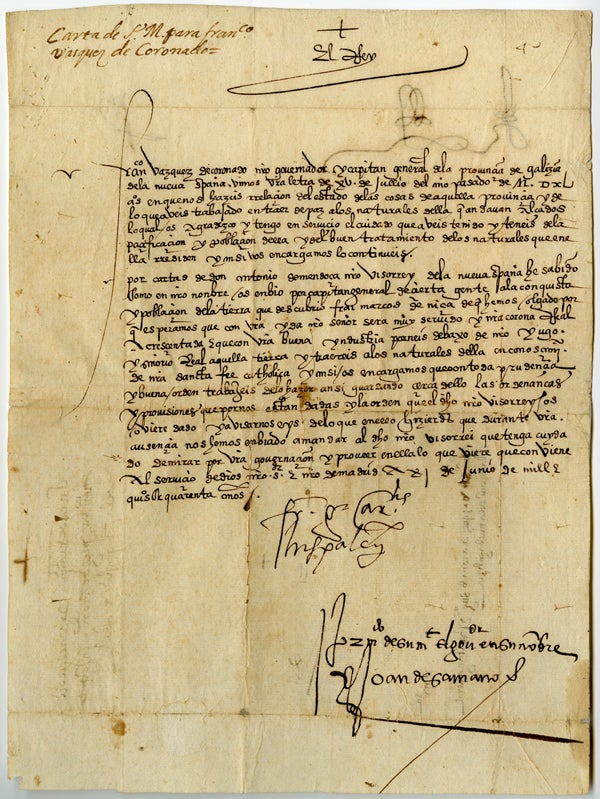 Carta de S. M. para fran^co
Vazquez de Coronado =
+
El Rey
fran^co vazquez de coronado nr̃o governador y capitan general dela provinçia de galizia
dela nueva españa. vimos vr̃a letra de xv de Jullio del año pasado de M. D xl
as en que nos hazeis rrelaçion del estado delas cosas de aquella provinçia y de
lo que aveis trabajado en traer de paz alos naturales della q̃ andavan alçados
lo qual os agradezco y tengo en serviçio el cuidado que aveis tenido y teneis dela
paçificaçion y poblaçion deessa y del buen tratamiento delos naturales que ene
lla rresiden y ansi vos encargamos lo continueis.
por cartas de don antonio de mendoca nr̃o visorrey dela nueva españa he sabido
como en nr̃o nonbre / os enbio por capitan general de çierta gente ala conquista
y poblaçion dela tierra que descubrio frai marcos de niça de q̃ hemos olgado por
q̃ esperamos que con vr̃a yda nr̃o señor sera muy servido y mi corona rreal
acresçentada y que con vr̃a buena yndustria porneis debaxo de nr̃o yugo
y señorio Real aquella tierra y traereis alos naturales della en conosçimi^o
de nr̃a sancta fee catholica y ansi / os encargamos que con toda prudençia
y buena / orden trabajeis de lo hazer ansi guardando çerca dello las ordenanças
y provisiones que por nos estan dadas y la orden que el dh̃o nr̃o visorrey / os
oviere dado y avisarnos eys de lo que en ello hizierd^s que durante vr̃a
ausençia nos hemos enbiado a mandar al dh̃o nr̃o visorrei que tenga cuyda
do de mirar por vr̃a governaçion y proveer en ella lo que viere que conviene
al serviçio de dios nr̃o s^or z nr̃o de madrid a xxj de Junio de mill z
qui^os z quarenta años /.
fr. g. Car^lis
hispaleñ
Por m^do de su m^t El gov^or en su nõbre
Joan de Samano